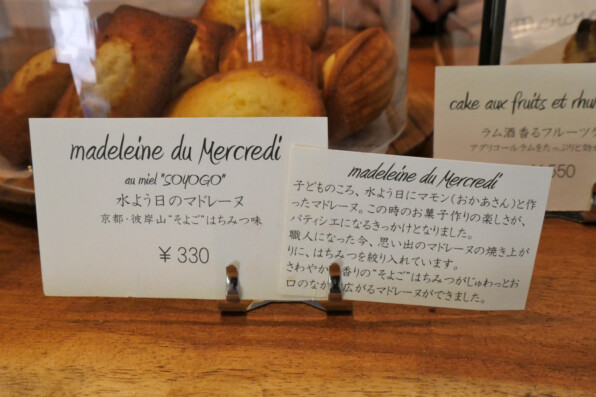 madeleine du Mercredi
au miel "SOYOGO"
水よう日のマドレーヌ
京都・彼岸山“そよご”はちみつ味
¥330
madeleine du Mercredi
子どものころ、水よう日にマモン(おかあさん)と作
ったマドレーヌ。この時のお菓子作りの楽しさが、
パティシエになるきっかけとなりました。
職人になった今、思い出のマドレーヌの焼き上が
りに、はちみつを絞り入れています。
さわやか 香りの“そよご”はちみつがじゅわっとお
口のなか 広がるマドレーヌができました。
cake aux fruits et rhu
ラム酒香るフルーツケ
アプリコールラムをたっぷりと効か
¥550